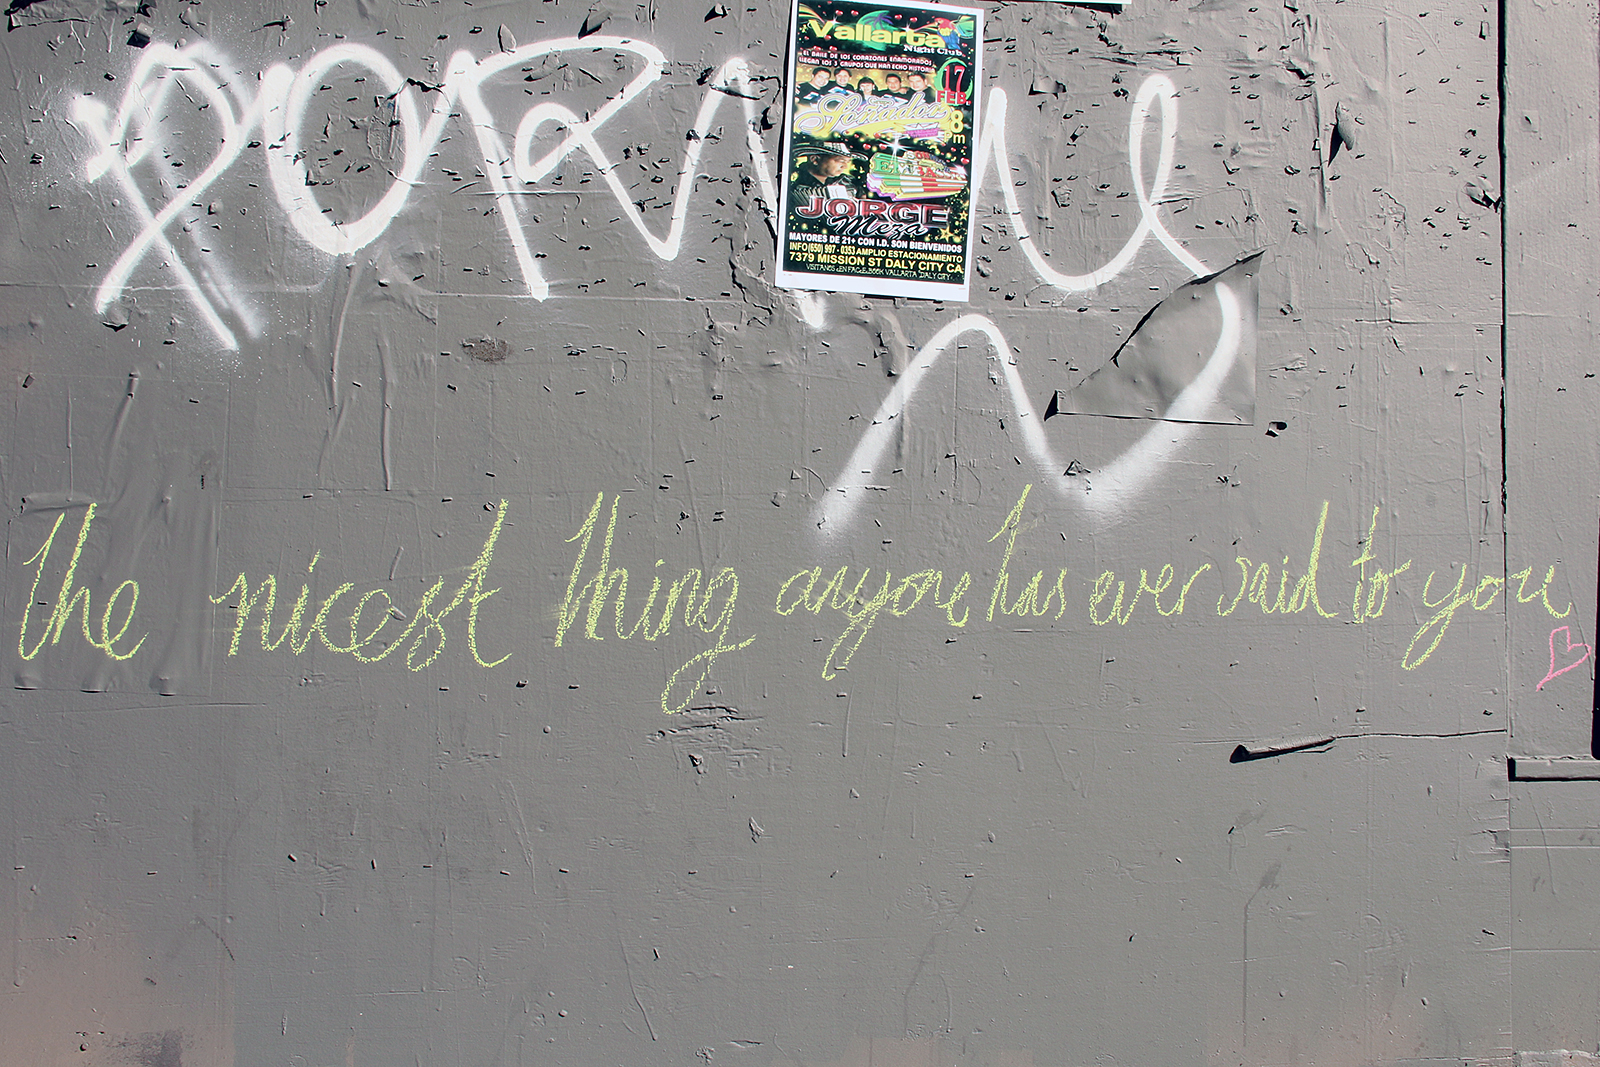 Vallarta
Night Club
EL BAILE DE LOS CORAZONES ENAMORADOS
LLEGAN LOS 3 GRUPOS QUE HAN ECHO HISTORIA
17
FEB.
8
Pm
JORGE
Meza
MAYORES DE 21+ CON I.D. SON BIENVENIDOS
INFO (650) 997 - 0353 AMPLIO ESTACIONAMIENTO
7379 MISSION ST DALY CITY CA
VISITANOS EN FACEBOOK VALLARTA DALY CITY
the nicest thing anyone has ever said to you